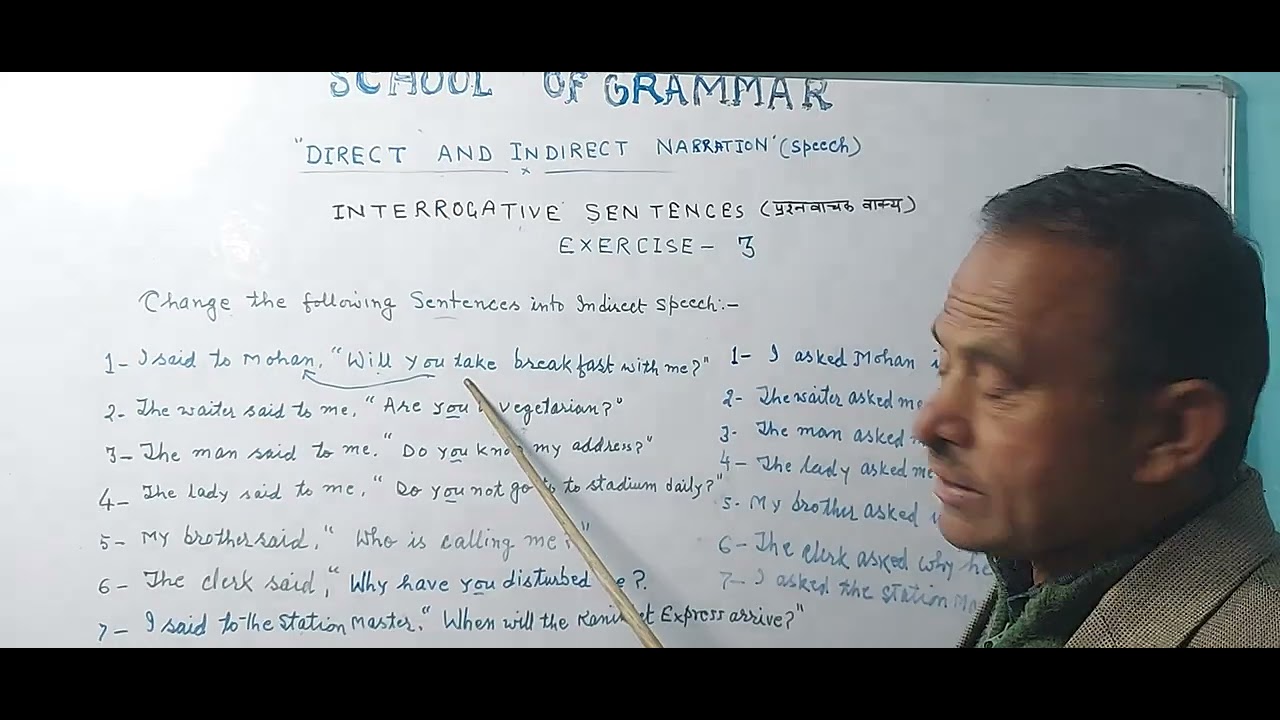 SCHOOL OF GRAMMAR
"DIRECT AND INDIRECT NARRATION" (Speech)
INTERROGATIVE SENTENCES (प्रश्नवाचक वाक्य)
EXERCISE - 3
Change the following Sentences into Indirect Speech:-
1- I said to Mohan, "Will you take breakfast with me?"
2- The waiter said to me, "Are you vegetarian?"
3- The man said to me, "Do you know my address?"
4- The lady said to me, "Do you not go to stadium daily?"
5- My brother said, "Who is calling me?"
6- The clerk said, "Why have you disturbed ?
7- I said to the Station Master, "When will the Express arrive?"
1- I asked Mohan
2- The waiter asked me
3- The man asked
4- The lady asked me
5- My brother asked
6- The clerk asked why he
7- I asked the station